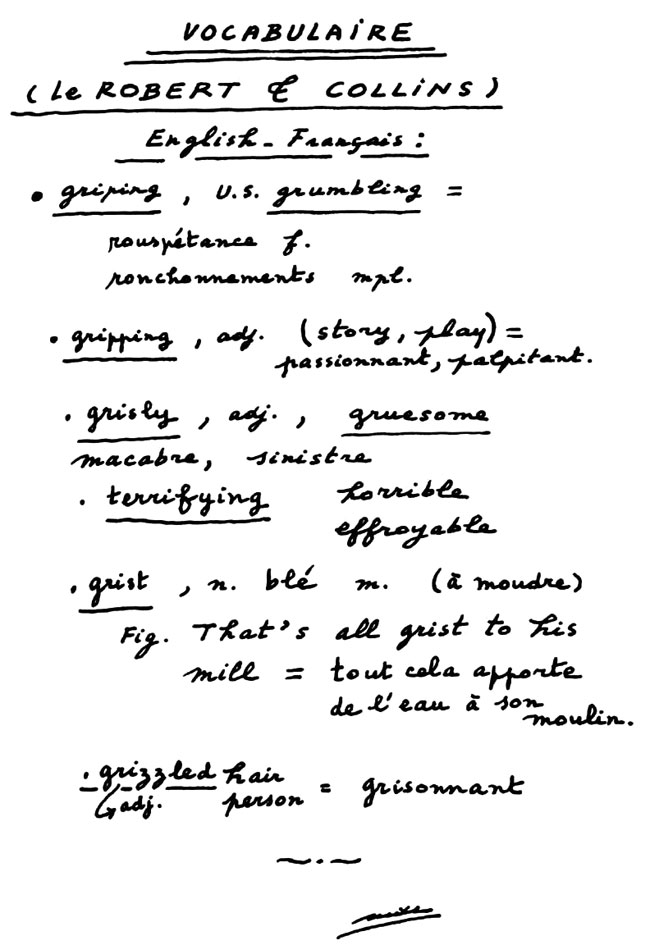 VOCABULAIRE
(Le ROBERT & COLLINS)
English - Français :
• griping, U.S. grumbling =
rouspétance f.
ronchonnements mpl.
• gripping, adj. (story, play) =
passionnant, palpitant.
• grisly, adj., gruesome
macabre, sinistre
• terrifying horrible
effroyable
• grist, n. blé m. (à moudre)
Fig. That's all grist to his
mill = tout cela apporte
de l'eau à son
moulin.
• grizzled hair
adj. person = grisonnant